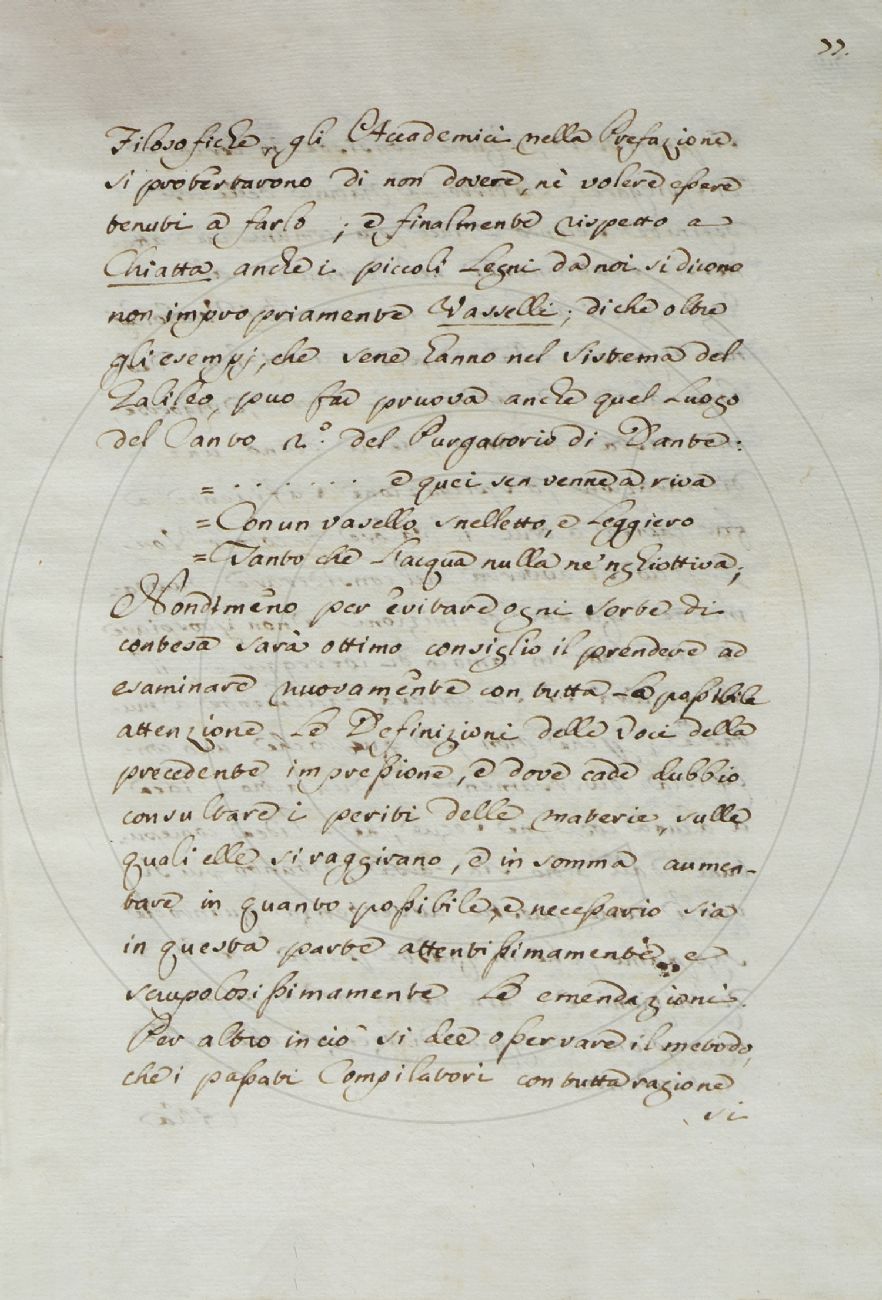 33.
Filosofiche, gli Accademici nella Prefazione
si protestarono di non dovere, nè volere essere
tenuti a farlo; e finalmente rispetto a
Chiatta anche i piccoli Legni da noi si dicono
non impropriamente Vasselli; di che oltre
gli esempj, che sene hanno nel Sistema del
Galileo, puo far pruova anche quel Luogo
del Canto 2.º del Purgatorio di Dante:
= . . . . . . . e quei sen venne a riva
= Con un vasello snelletto, e Leggiero
= Tanto che L'acqua nulla ne 'nghiottiva;
Nondimeno per evitare ogni sorte di
contesa sarà ottimo consiglio il prendere ad
esaminare nuovamente con tutta La possibile
attenzione Le Definizioni delle Voci della
precedente impressione, e dove cade dubbio
consultare i periti delle materie, sulle
quali elle si raggirano, e in somma aumen-
tare in quanto possibile, e necessario sia
in questa parte attentissimamente, e
scrupolosissimamente Le emendazioni.
Per altro in ciò si dee osservare il metodo,
che i passati Compilatori con tutta ragione
si